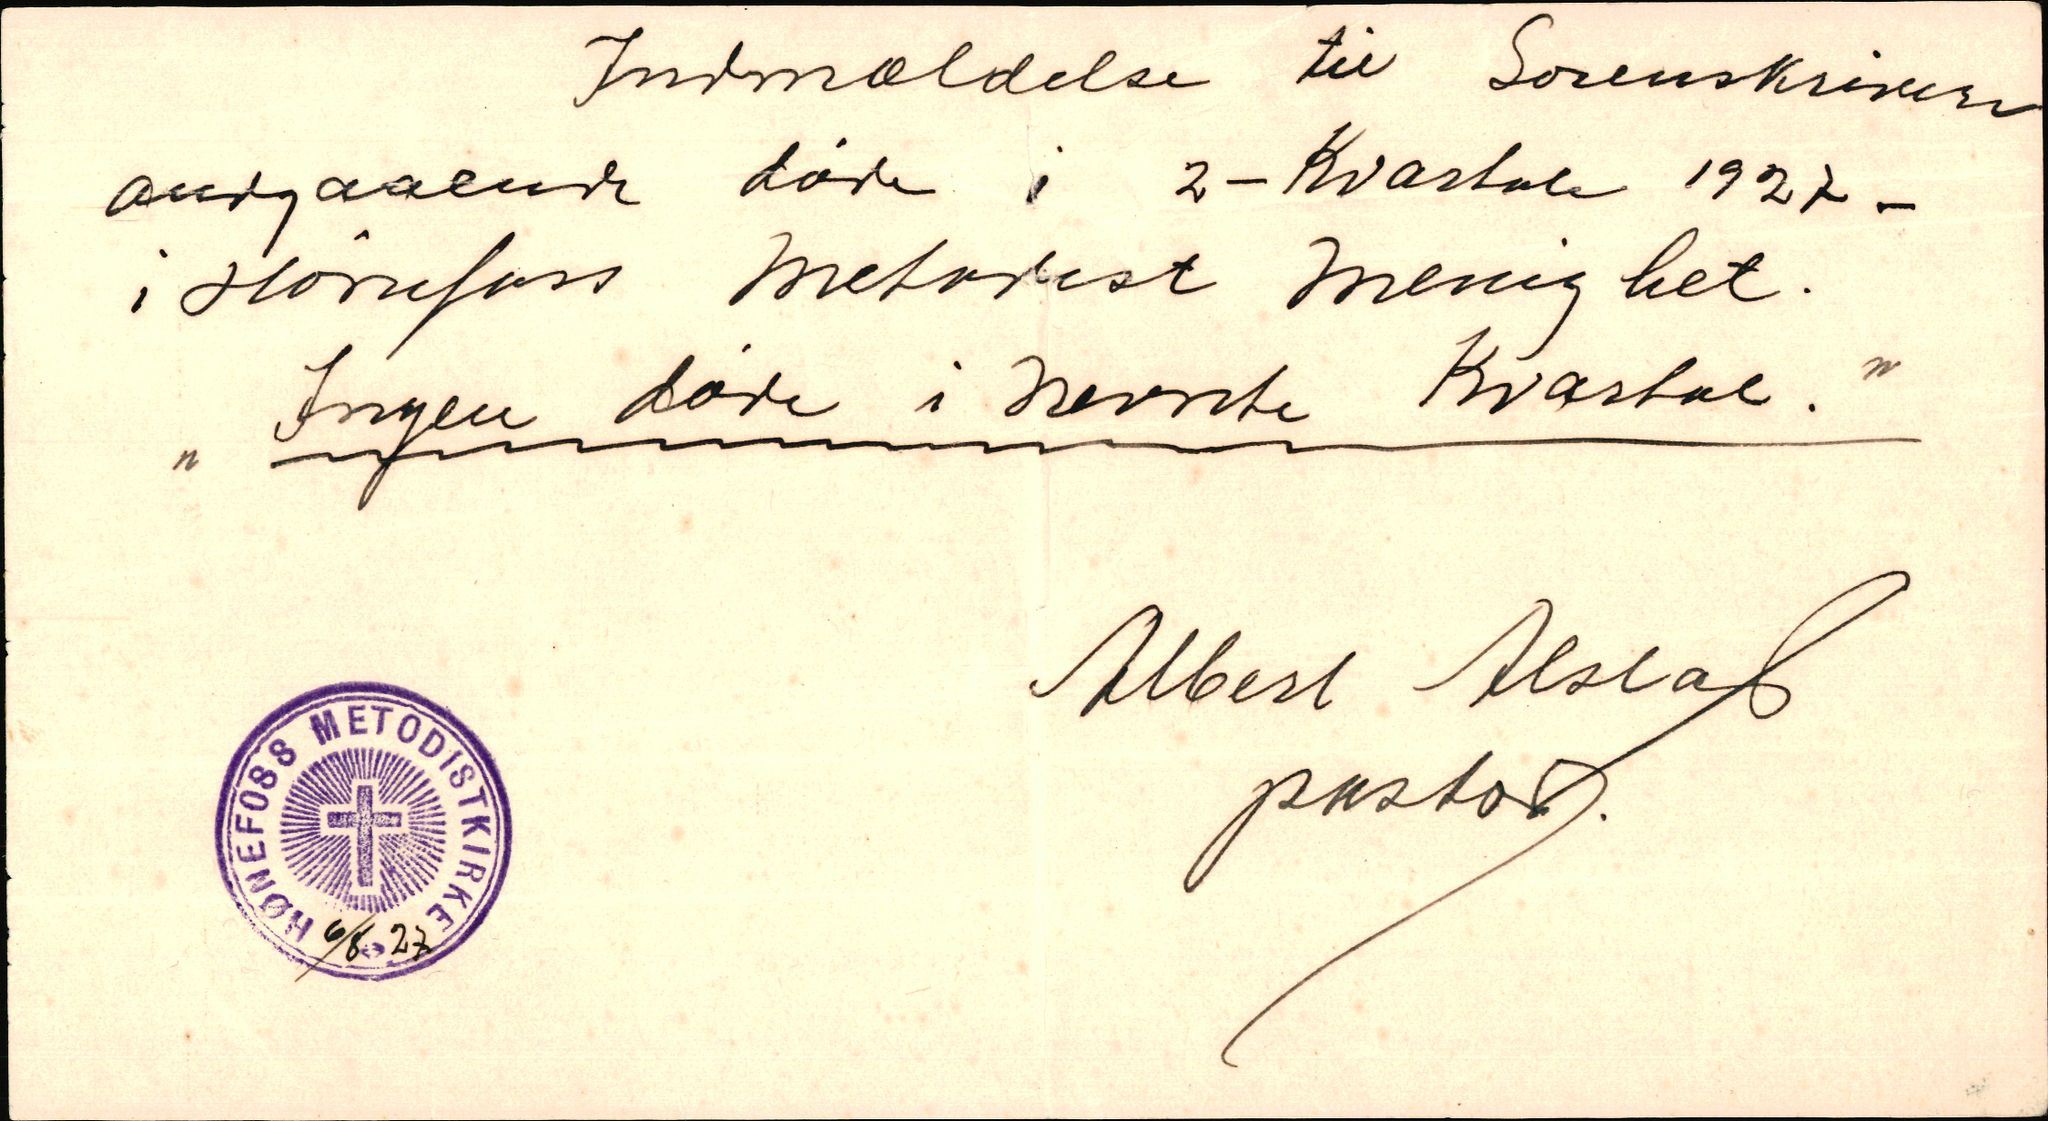 Indmældelse til Sorenskriver
angaaende døde i 2-Kvartal 1927-
i Hönefoss Metodist Menighet.
" Ingen døde i nevnte Kvartal. "
Albert
pastor.
HØNEFOSS METODISTKIRKE
6/8 27